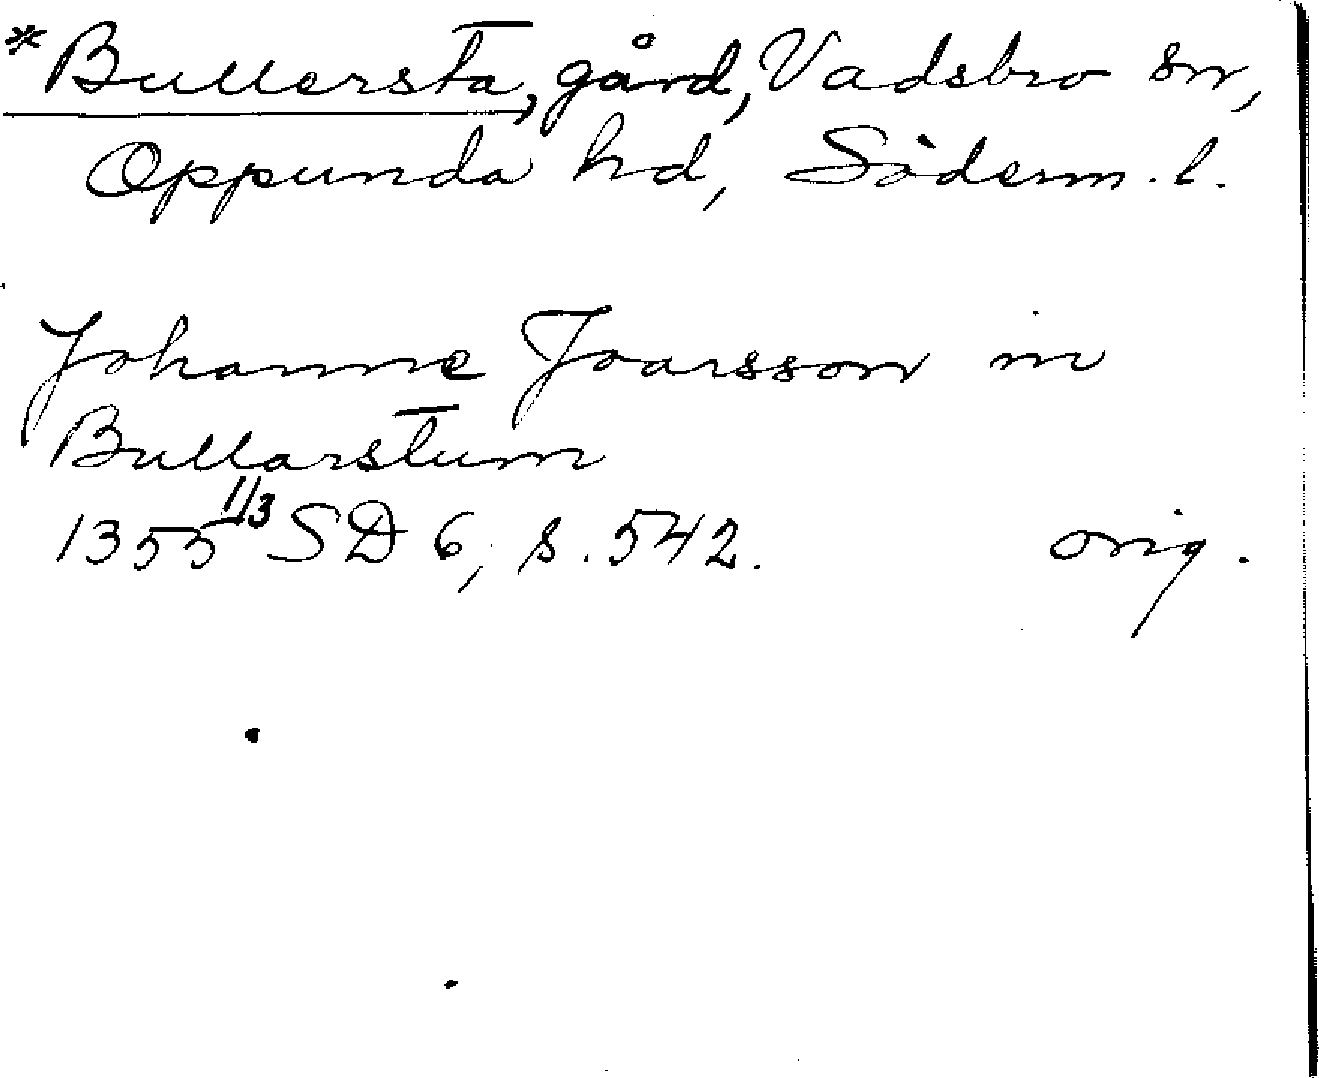 *Bullersta, gård, Vadsbro sn,
Oppunda hd, Söderm. l.
Johanne Joarsson in
Bullarstum
1355 1/3 SD 6, s. 542. orig.